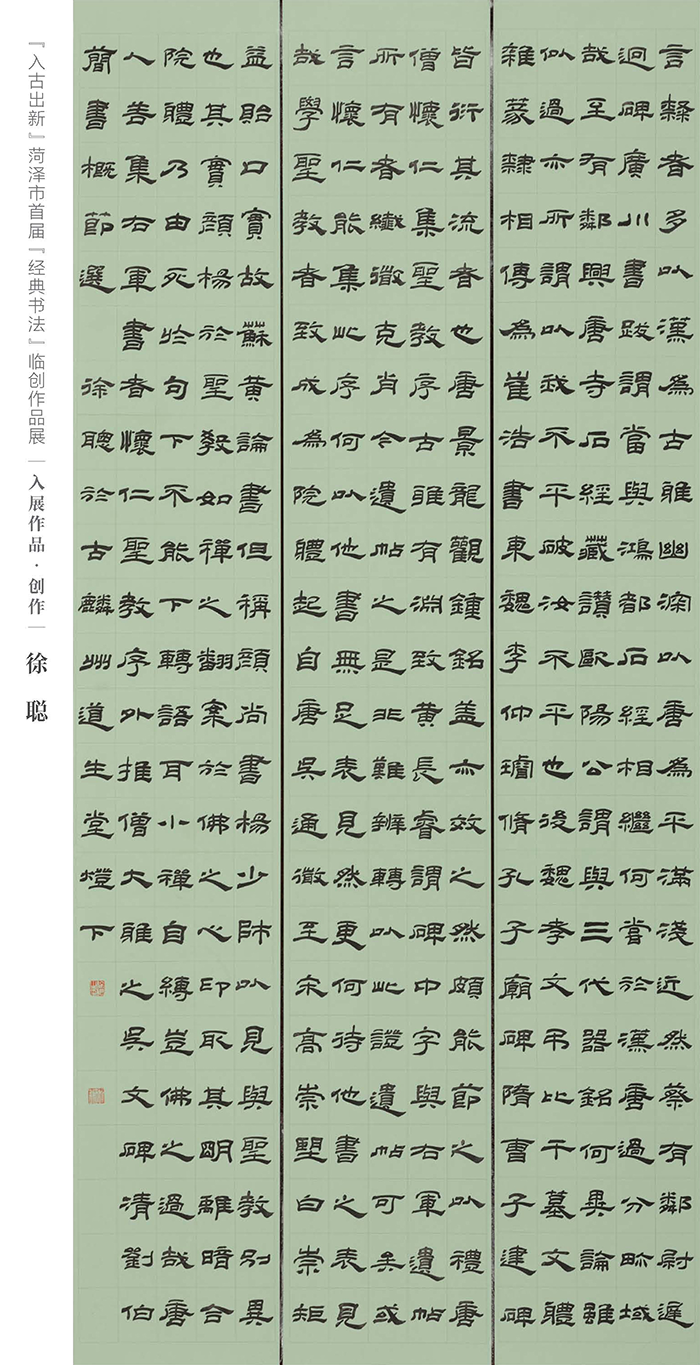 言隸者多以漢為古雅幽深以唐為平滿淺近然蔡有鄰尉遲
迥碑廣川書跋謂當與鴻都石經相繼何嘗於漢唐過分畛域
哉至有鄰興唐寺石經藏讚歐陽公謂與三代器銘何異論雖
似過亦所謂以我不平破汝不平也後魏孝文弔比干墓文體
雜篆隸相傳為崔浩書東魏李仲璿脩孔子廟碑隋曹子建碑
皆衍其流者也唐景龍觀鍾銘盖亦效之然頗能節之以禮唐
僧懷仁集聖教序古雅有淵致黃長睿謂碑中字與右軍遺帖
所有者纖微克肖今遺帖之是非難辨轉以此證遺帖可矣或
言懷仁能集此序何以他書無足表見然更何待他書之表見
哉學聖教者致成為院體起自唐吳通微至宋高崇朢白崇矩
益貽口實故蘇黃論書但稱顏尚書楊少師以見與聖教別異
也其實顏楊於聖教如禪之翻案於佛之心印取其明離暗合
院體乃由死於句下不能下轉語耳小禪自縛豈佛之過哉唐
人善集右軍書者懷仁聖教序外推僧大雅之吳文碑清劉伯
簡書概節選 徐聰於古麟州道生堂燈下
『入古出新』菏泽市首届『经典书法』临创作品展｜入展作品·创作｜徐 聪